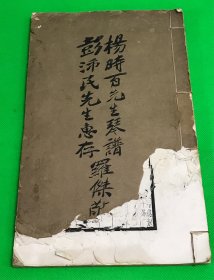 楊時百先生琴譜
彭沛民先生惠存 羅傑